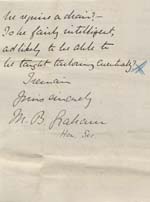 he require a chair? -
Is he fairly intelligent,
and likely to be able to
be taught tailoring eventually?
I remain
Yours sincerely
M. B. Graham
Hon. Sec